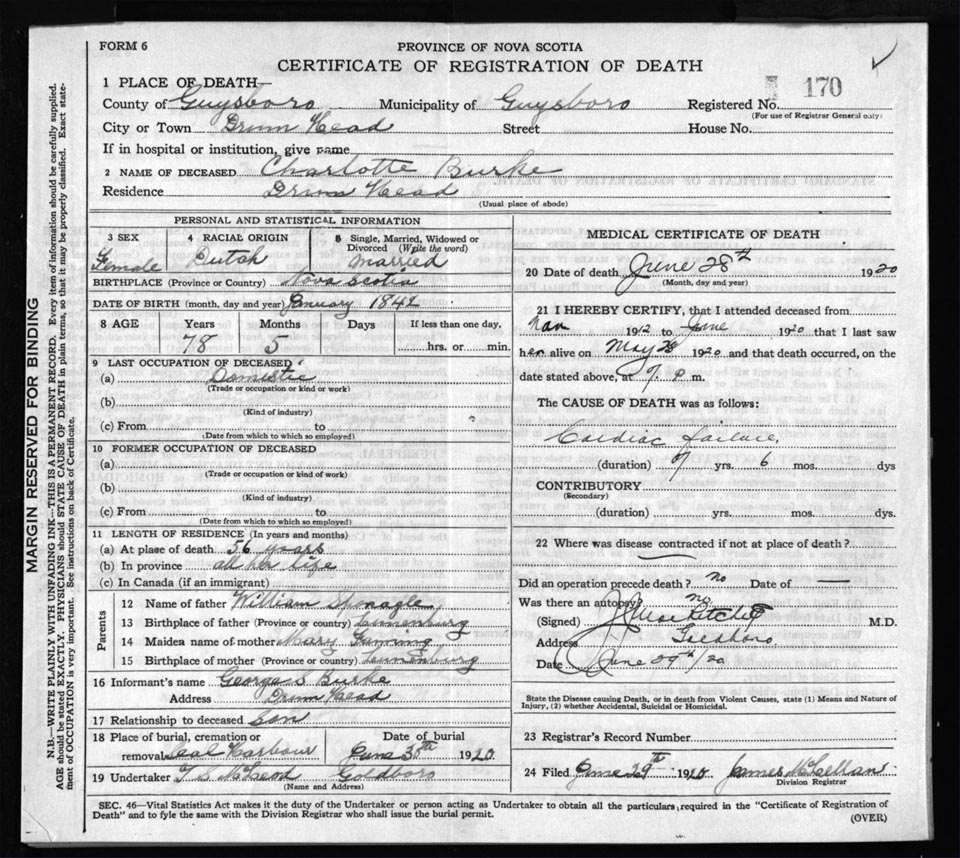 FORM 6
PROVINCE OF NOVA SCOTIA
CERTIFICATE OF REGISTRATION OF DEATH
170
1 PLACE OF DEATH—
County of Guysboro Municipality of Guysboro Registered No.
(For use of Registrar General only)
City or Town Drum Head Street House No.
If in hospital or institution, give name
2 NAME OF DECEASED Charlotte Burke
Residence Drum Head
(Usual place of abode)
PERSONAL AND STATISTICAL INFORMATION
3 SEX 4 RACIAL ORIGIN 5 Single, Married, Widowed or Divorced (Write the word)
Female Dutch Married
BIRTHPLACE (Province or Country) Nova Scotia
DATE OF BIRTH (month, day and year) January 1842
8 AGE Years Months Days If less than one day,
78 5 hrs. or min.
9 LAST OCCUPATION OF DECEASED
(a) Domestic
(Trade or occupation or kind or work)
(b)
(Kind of industry)
(c) From to
(Date from which to which so employed)
10 FORMER OCCUPATION OF DECEASED
(a)
(Trade or occupation or kind or work)
(b)
(Kind of industry)
(c) From to
(Date from which to which so employed)
11 LENGTH OF RESIDENCE (In years and months)
(a) At place of death 56 years
(b) In province all her life
(c) In Canada (if an immigrant)
Parents
12 Name of father William
13 Birthplace of father (Province or country) Lunenburg
14 Maiden name of mother Mary Fanning
15 Birthplace of mother (Province or country) Lunenburg
16 Informant's name George S Burke
Address Drum Head
17 Relationship to deceased Son
18 Place of burial, cremation or Date of burial
removal Seal Harbour June 30th 1920
19 Undertaker T S McLeod Goldboro
(Name and Address)
MEDICAL CERTIFICATE OF DEATH
20 Date of death June 28th 1920
(Month, day and year)
21 I HEREBY CERTIFY, that I attended deceased from
1912 to June 1920 that I last saw
her alive on May 28 1920 and that death occurred, on the
date stated above, at 9. p. m.
The CAUSE OF DEATH was as follows:
Cardiac failure,
(duration) 7 yrs. 6 mos. dys
CONTRIBUTORY
(Secondary)
(duration) yrs. mos. dys.
22 Where was disease contracted if not at place of death?
Did an operation precede death? no Date of —
Was there an autopsy? no
(Signed) M.D.
Address Goldboro
Date June 29th/20
State the Disease causing Death, or in death from Violent Causes, state (1) Means and Nature of
Injury, (2) whether Accidental, Suicidal or Homicidal.
23 Registrar's Record Number
24 Filed June 29th 1920 James McLellan
Division Registrar
SEC. 46—Vital Statistics Act makes it the duty of the Undertaker or person acting as Undertaker to obtain all the particulars required in the "Certificate of Registration of
Death" and to fyle the same with the Division Registrar who shall issue the burial permit.
(OVER)
MARGIN RESERVED FOR BINDING
N.B.—WRITE PLAINLY WITH UNFADING INK—THIS IS A PERMANENT RECORD. Every item of information should be carefully supplied.
AGE should be stated EXACTLY. PHYSICIANS should STATE CAUSE OF DEATH in plain terms, so that it may be properly classified. Exact state-
ment of OCCUPATION is very important. See instructions on back of Certificate.